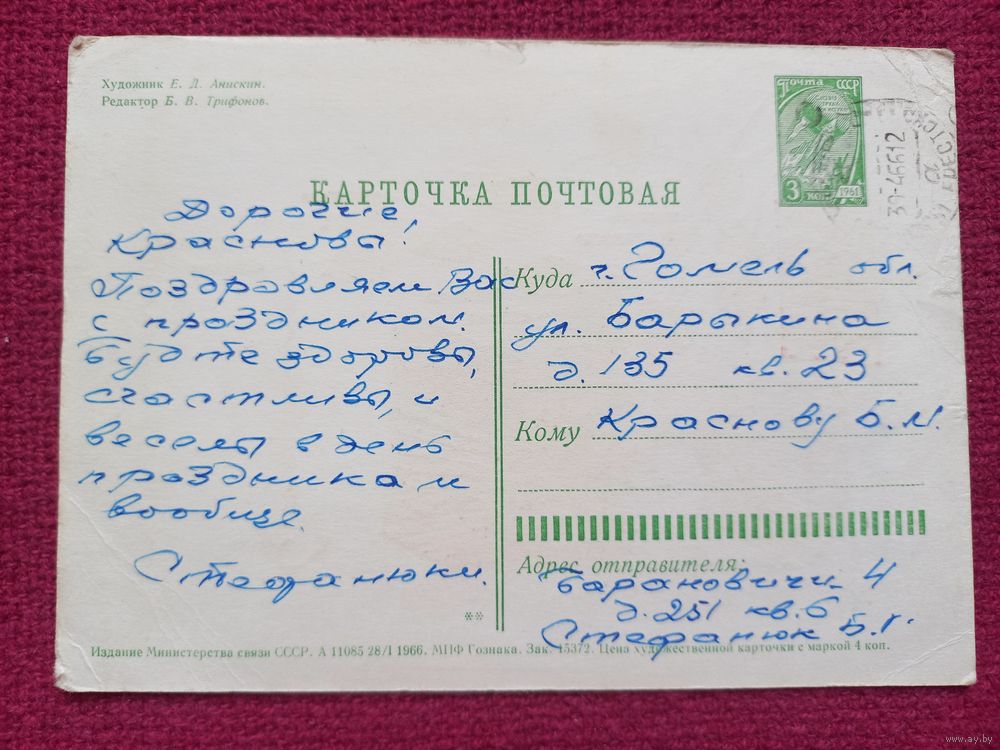 Художник Е. Д. Анискин.
Редактор Б. В. Трифонов.
Почта СССР
3 коп
1961
КАРТОЧКА ПОЧТОВАЯ
Дорогие
Красновы!
Поздравляем Вас
с праздником.
Будте здоровы,
счастливы, и
веселы в день
праздника и
вообще.
Стефанюки.
Куда г. Гомель обл.
ул. Барыкина
д. 135 кв. 23
Кому Краснову Б.М.
Адрес отправителя:
Барановичи-4
д. 251 кв. 6
Стефанюк Б.Г.
**
Издание Министерства связи СССР. А 11085 28/I 1966. МПФ Гознака. Зак. 15372. Цена художественной карточки с маркой 4 коп.
www.ay.by